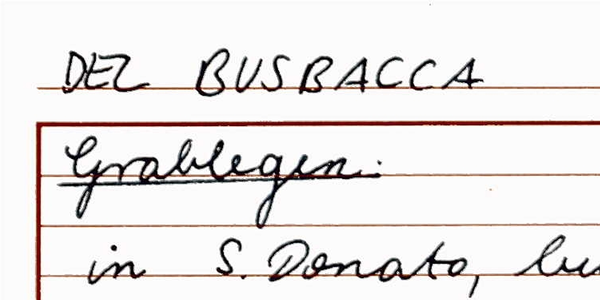 DEL BUSBACCA
Grablegen:
in S. Donato,